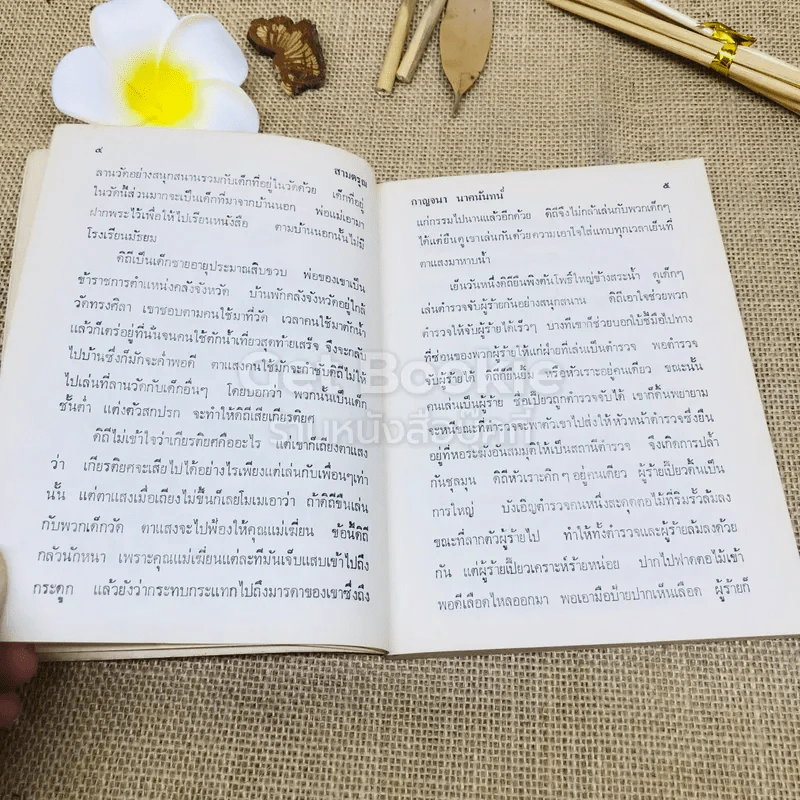 ๔
สามดรุณ
ลานวัดอย่างสนุกสนานรวมกับเด็กที่อยู่ในวัดด้วย เด็กที่อยู่
ในวัดนี้ส่วนมากจะเป็นเด็กที่มาจากบ้านนอก พ่อแม่เอามา
ฝากพระไว้เพื่อให้ไปเรียนหนังสือ ตามบ้านนอกนั้นไม่มี
โรงเรียนมัธยม
ดิถีเป็นเด็กชายอายุประมาณสิบขวบ พ่อของเขาเป็น
ข้าราชการตำแหน่งคลังจังหวัด บ้านพักคลังจังหวัดอยู่ใกล้
วัดทรงศิลา เขาชอบตามคนใช้มาที่วัด เวลาคนใช้มาตักน้ำ
แล้วก็เตร่อยู่ที่นั่นจนคนใช้ตักน้ำเที่ยวสุดท้ายเสร็จ จึงจะกลับ
ไปบ้านซึ่งก็มักจะค่ำพอดี ตาแสงคนใช้มักจะกำชับดิถีไม่ให้
ไปเล่นที่ลานวัดกับเด็กอื่นๆ โดยบอกว่า พวกนั้นเป็นเด็ก
ชั้นต่ำ แต่งตัวสกปรก จะทำให้ดิถีเสียเกียรติยศ
ดิถีไม่เข้าใจว่าเกียรติยศคืออะไร แต่เขาก็เถียงตาแสง
ว่า เกียรติยศจะเสียไปได้อย่างไรเพียงแต่เล่นกับเพื่อนๆเท่า
นั้น แต่ตาแสงเมื่อเถียงไม่ขึ้นก็เลยโมเมเอาว่า ถ้าดิถีขืนเล่น
กับพวกเด็กวัด ตาแสงจะไปฟ้องให้คุณแม่เฆี่ยน ข้อนี้ดิถี
กลัวนักหนา เพราะคุณแม่เฆี่ยนแต่ละทีมันเจ็บแสบเข้าไปถึง
กระดูก แล้วยังว่ากระทบกระแทกไปถึงมารดาของเขาซึ่งถึง
กาญจนา นาคนันทน์
๕
แก่กรรมไปนานแล้วอีกด้วย ดิถีจึงไม่กล้าเล่นกับพวกเด็กๆ
ได้แต่ยืนดูเขาเล่นกันด้วยความเอาใจใส่แทบทุกเวลาเย็นที่
ตาแสงมาหาบน้ำ
เย็นวันหนึ่งดิถียืนพิงต้นโพธิ์ใหญ่ข้างสระน้ำ ดูเด็กๆ
เล่นตำรวจจับผู้ร้ายกันอย่างสนุกสนาน ดิถีเอาใจช่วยพวก
ตำรวจให้จับผู้ร้ายได้เร็วๆ บางทีเขาก็ช่วยบอกใบ้ชี้มือไปทาง
ที่ซ่อนของพวกผู้ร้ายให้แก่ฝ่ายที่เล่นเป็นตำรวจ พอตำรวจ
จับผู้ร้ายได้ ดิถีก็ยืนยิ้ม หรือหัวเราะอยู่คนเดียว ขณะนั้น
คนเล่นเป็นผู้ร้าย ชื่อเปี๊ยวถูกตำรวจจับได้ เขาก็ดิ้นพยายาม
จะหนีขณะที่ตำรวจจะพาตัวเขาไปส่งให้หัวหน้าตำรวจซึ่งยืน
อยู่ที่หอระฆังอันสมมุติให้เป็นสถานีตำรวจ จึงเกิดการปล้ำ
กันชุลมุน ดิถีหัวเราะคิกๆ อยู่คนเดียว ผู้ร้ายเปี๊ยวดิ้นเป็น
การใหญ่ บังเอิญตำรวจคนหนึ่งสะดุดตอไม้ที่ริมรั้วล้มลง
ขณะที่ลากตัวผู้ร้ายไป ทำให้ทั้งตำรวจและผู้ร้ายล้มลงด้วย
กัน แต่ผู้ร้ายเปี๊ยวเคราะห์ร้ายหน่อย ปากไปฟาดตอไม้เข้า
พอดีเลือดไหลออกมา พอเอามือป้ายปากเห็นเลือด ผู้ร้ายก็